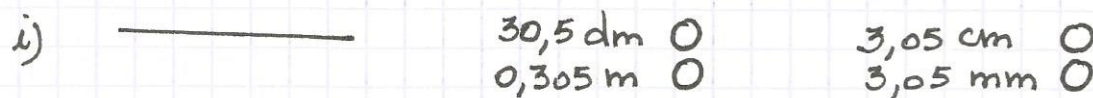 i) 30,5 dm O 3,05 cm O
0,305 m O 3,05 mm O